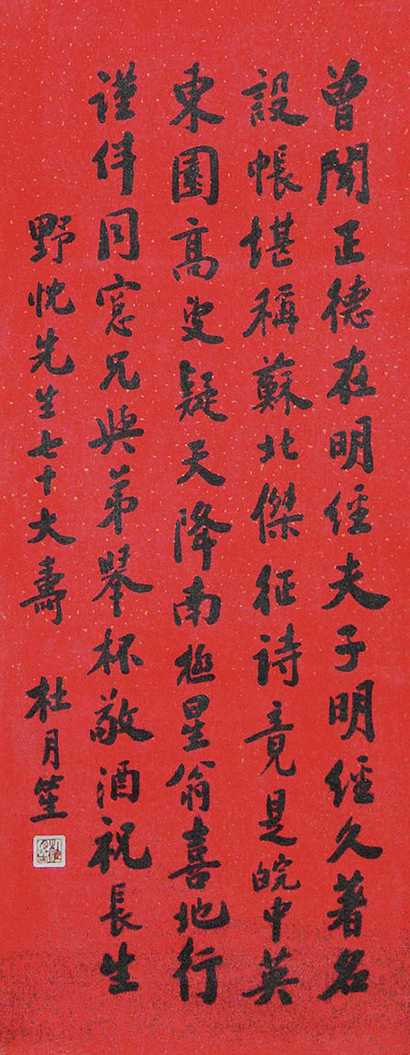 曾聞正德在明經夫子明經久著名
設帳堪稱蘇北傑征詩竟是皖中英
東園高叟疑天降南極星翁喜地行
謹伴同窓兄與弟舉杯敬酒祝長生
野忱先生七十大壽
杜月笙